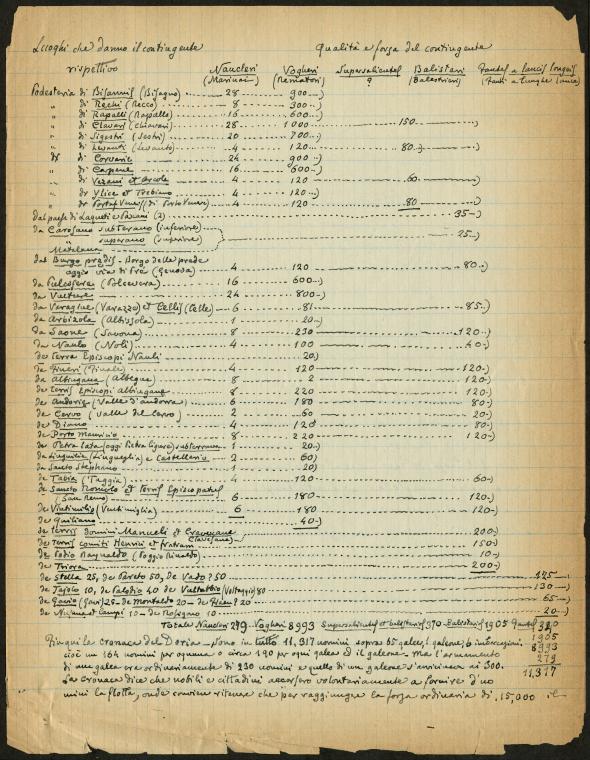 Luoghi che danno il contingente Qualità e forza del contingente
rispettivo Naucleri Vogheri Supersalientes Balistari Fantes a lanceis longis
(Marinai) (Rematori) ? (Balestrieri) (Fanti a lunghe lance)
Podesteria di Bisannis (Bisagno) 28 900
" di Rechi (Recco) 8 300
" di Rapalli (Rapallo) 16 600
" di Clavari (Chiavari) 28 1000 150
" di Sigestri (Sestri) 20 700
" di Levanti (Levanto) 4 120 80
" di Corvarie 24 900
" di Carpene 16 600
" di Vezani et Arcole 4 120 60
" de Ylice et Trebiano 4 120
" de Portus Veneris (di Porto Venere) 4 120 80
dal paese di Lagneti e Passani (2) 35
da Carosano subterano (inferiore)
" superano (superiore) 25
Matalana
dal Burgo predis - Borgo delle prede
oggio via di Prè (Genova) 4 120 80
da Pulcefera (Polcevera) 16 600
da Vulture 24 800
da Varagine (Varazze) et Cellis (Celle) 6 81 85
da Arbizola (Albissola) 1 20
da Saone (Savona) 8 230 120
da Naulo (Noli) 4 100 40
de terra Episcopi Nauli 20
da Finari (Finale) 4 120 120
da Albingana (Albegna) 8 2 120
de terris Episcopi Albingane 8 220 120
de Andoria (Valle d'Andorra) 6 180 80
de Cervo (Valle del Cervo) 2 60 20
de Diano 4 120 80
de Porto Mauricio 8 220 120
de Petra Lata (oggi Pietra ligure) subterrana 1 20
da Linguilia (Lingueglia) e Castellario 2 60
da Sancto Stephano 1 20
de Tabia (Taggia) 4 120 60
de Sancto Romulo et terris Episcopatus
(San Remo) 6 180 120
de Vintimilio (Ventimiglia) 6 180 120
de Quiliano 40
de terris domini Manueli de Cravexane 200
de terris comiti Henrici et fratrum (Clavesane) 150
de Podio Raynaldo (Poggio Rinaldo) 10
de Triora 200
de Stella 25, de Pareto 50, de Vado ? 50 125
de Tajolo 10, de Palodio 40 de Vultabbio (Voltaggio) 80 130
de Gavio (Gavi) 25 - de Montaldo 20 - de ? 20 65
de et Campi 10 - de Rossiglono 10 20
Totale Naucleri 279 - Vogheri 8993 Supersalientes et balistari 370 - Balistari 1905 Fantes 390
Pingui la cronaca del Doria sono in tutto 11,317 uomini sopra 65 galee, 1 galeone, 6 1905
cioè un 164 uomini per ognuna o circa 190 per ogni galea ed il galeone. Ma l'armamento 8993
di una galea era ordinariamente di 230 uomini e quello di un galeone s'avvicina ai 300. 279
La cronaca dice che nobili e cittadini accorsero volontariamente a fornire d'uo 11,317
mini la flotta, onde conviene ritenere che per raggiungere la forza ordinaria di 15,000 il